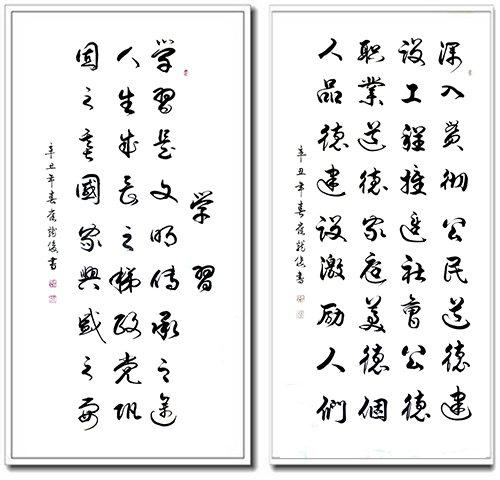 学習
学習是文明传承之途
人生成长之梯政党巩
固之基國家興盛之要
辛丑年春崔 書
深入贯彻公民道德建
设工程推进社會公德
职業道德家庭美德個
人品德建设激励人們
辛丑年春崔 書